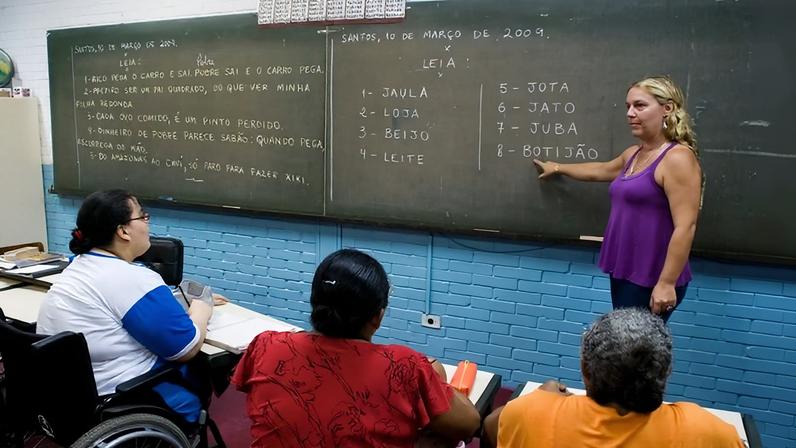 SANTOS, 10 DE MARÇO DE 2009.
LEIA:
1- RICO PEGA O CARRO E SAI. POBRE SAI E O CARRO PEGA.
2- PREFIRO SER UM PAI QUADRADO, DO QUE VER MINHA
FILHA REDONDA
3- CADA OVO COMIDO, É UM PINTO PERDIDO.
4- DINHEIRO DE POBRE PARECE SABÃO: QUANDO PEGA,
ESCORREGA DA MÃO.
5- DO AMAZONAS AO CHUÍ, SÓ PARO PARA FAZER XIXI.
SANTOS, 10 DE MARÇO DE 2009.
LEIA:
1- JAULA
2- LOJA
3- BEIJO
4- LEITE
5- JOTA
6- JATO
7- JUBA
8- BOTIJÃO